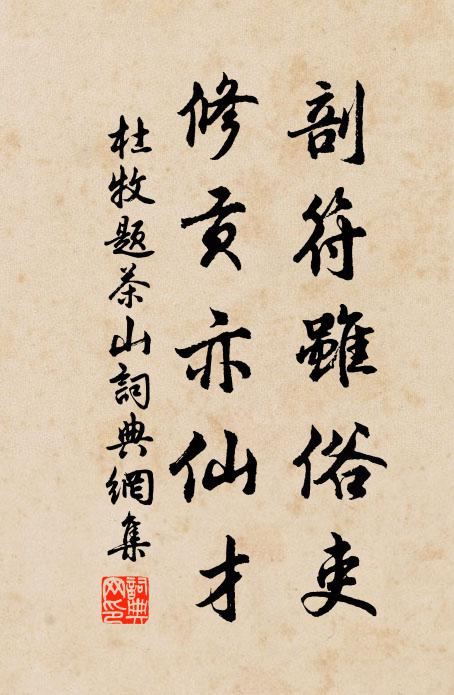 剖符雖俗吏
修貢亦仙才
杜牧題茶山詞典網集
詞典網印